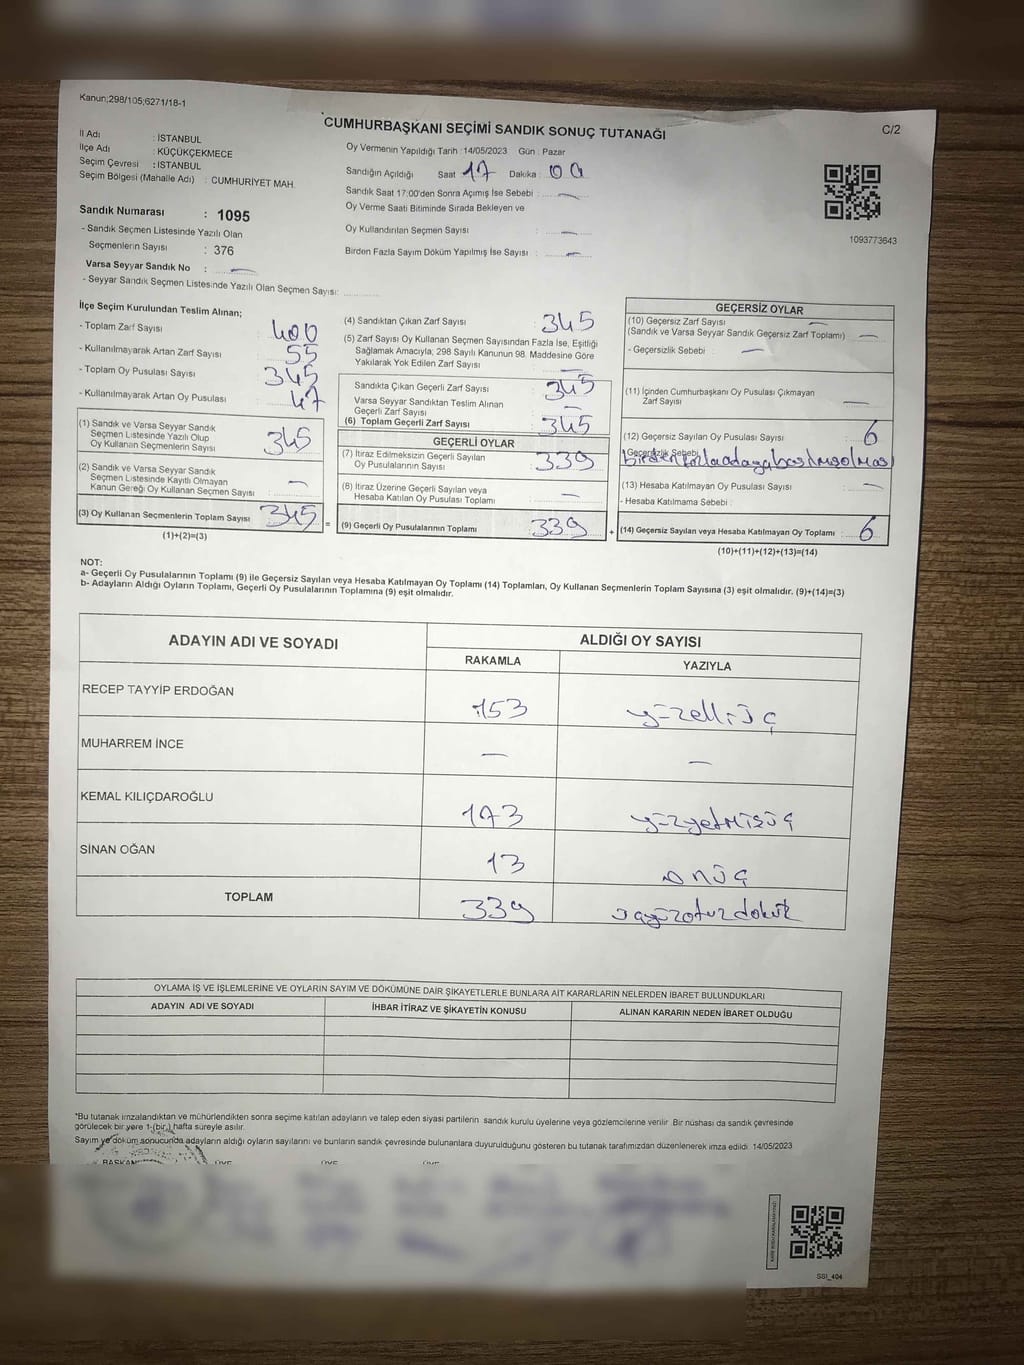 Kanun;298/105;6271/18-1
CUMHURBAŞKANI SEÇİMİ SANDIK SONUÇ TUTANAĞI
C/2
İl Adı : İSTANBUL
İlçe Adı : KÜÇÜKÇEKMECE
Seçim Çevresi : İSTANBUL
Seçim Bölgesi (Mahalle Adı) : CUMHURİYET MAH.
Sandık Numarası : 1095
- Sandık Seçmen Listesinde Yazılı Olan
Seçmenlerin Sayısı : 376
Varsa Seyyar Sandık No : —
- Seyyar Sandık Seçmen Listesinde Yazılı Olan Seçmen Sayısı:
Oy Vermenin Yapıldığı Tarih :14/05/2023 Gün : Pazar
Sandığın Açıldığı Saat 17 Dakika :
Sandık Saat 17:00'den Sonra Açımış İse Sebebi : —
Oy Verme Saati Bitiminde Sırada Bekleyen ve
Oy Kullandırılan Seçmen Sayısı : —
Birden Fazla Sayım Döküm Yapılmış İse Sayısı : —
1093773643
İlçe Seçim Kurulundan Teslim Alınan;
- Toplam Zarf Sayısı : 400
- Kullanılmayarak Artan Zarf Sayısı : 55
- Toplam Oy Pusulası Sayısı : 345
- Kullanılmayarak Artan Oy Pusulası : 47
(1) Sandık ve Varsa Seyyar Sandık
Seçmen Listesinde Yazılı Olup
Oy Kullanan Seçmenlerin Sayısı 345
(2) Sandık ve Varsa Seyyar Sandık
Seçmen Listesinde Kayıtlı Olmayan
Kanun Gereği Oy Kullanan Seçmen Sayısı : —
(3) Oy Kullanan Seçmenlerin Toplam Sayısı 345
(1)+(2)=(3)
(4) Sandıktan Çıkan Zarf Sayısı : 345
(5) Zarf Sayısı Oy Kullanan Seçmen Sayısından Fazla İse, Eşitliği
Sağlamak Amacıyla; 298 Sayılı Kanunun 98. Maddesine Göre
Yakılarak Yok Edilen Zarf Sayısı : —
Sandıkta Çıkan Geçerli Zarf Sayısı : 345
Varsa Seyyar Sandıktan Teslim Alınan
Geçerli Zarf Sayısı : —
(6) Toplam Geçerli Zarf Sayısı : 345
GEÇERLİ OYLAR
(7) İtiraz Edilmeksizin Geçerli Sayılan
Oy Pusulalarının Sayısı : 339
(8) İtiraz Üzerine Geçerli Sayılan veya
Hesaba Katılan Oy Pusulası Toplamı : —
= (9) Geçerli Oy Pusulalarının Toplamı : 339
GEÇERSİZ OYLAR
(10) Geçersiz Zarf Sayısı —
(Sandık ve Varsa Seyyar Sandık Geçersiz Zarf Toplamı) : —
- Geçersizlik Sebebi : —
(11) İçinden Cumhurbaşkanı Oy Pusulası Çıkmayan
Zarf Sayısı : —
(12) Geçersiz Sayılan Oy Pusulası Sayısı : 6
- Geçersizlik Sebebi birden fazla adaya basılmış olması
(13) Hesaba Katılmayan Oy Pusulası Sayısı : —
- Hesaba Katılmama Sebebi :
+ (14) Geçersiz Sayılan veya Hesaba Katılmayan Oy Toplamı : 6
(10)+(11)+(12)+(13)=(14)
NOT:
a- Geçerli Oy Pusulalarının Toplamı (9) ile Geçersiz Sayılan veya Hesaba Katılmayan Oy Toplamı (14) Toplamları, Oy Kullanan Seçmenlerin Toplam Sayısına (3) eşit olmalıdır. (9)+(14)=(3)
b- Adayların Aldığı Oyların Toplamı, Geçerli Oy Pusulalarının Toplamına (9) eşit olmalıdır.
ADAYIN ADI VE SOYADI ALDIĞI OY SAYISI
RAKAMLA YAZIYLA
RECEP TAYYİP ERDOĞAN 153 yüzelliüç
MUHARREM İNCE — —
KEMAL KILIÇDAROĞLU 173 yüzyetmişüç
SİNAN OĞAN 13 onüç
TOPLAM 339 üçyüzotuzdokuz
OYLAMA İŞ VE İŞLEMLERİNE VE OYLARIN SAYIM VE DÖKÜMÜNE DAİR ŞİKAYETLERLE BUNLARA AİT KARARLARIN NELERDEN İBARET BULUNDUKLARI
ADAYIN ADI VE SOYADI İHBAR İTİRAZ VE ŞİKAYETİN KONUSU ALINAN KARARIN NEDEN İBARET OLDUĞU
*Bu tutanak imzalandıktan ve mühürlendikten sonra seçime katılan adayların ve talep eden siyasi partilerin sandık kurulu üyelerine veya gözlemcilerine verilir. Bir nüshası da sandık çevresinde
görülecek bir yere 1-(bir.) hafta süreyle asılır.
Sayım ve döküm sonucunda adayların aldığı oyların sayılarını ve bunların sandık çevresinde bulunanlara duyurulduğunu gösteren bu tutanak tarafımızdan düzenlenerek imza edildi. 14/05/2023
BAŞKAN ÜYE ÜYE ÜYE
SSİ_404